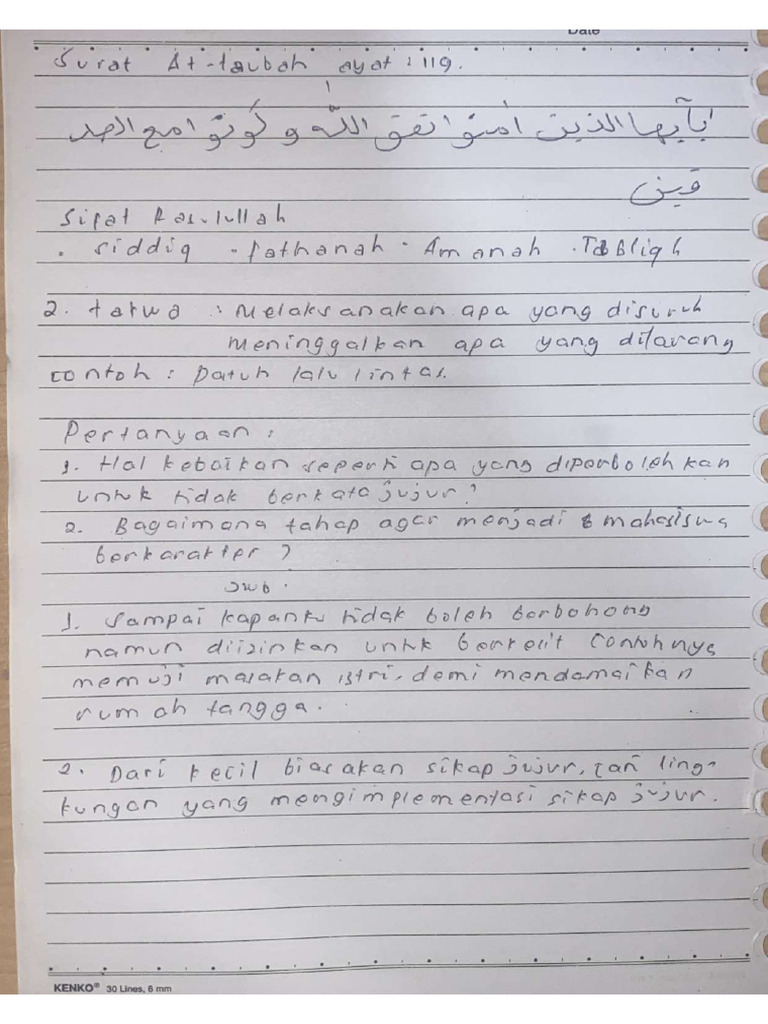 Date
Surat At-taubah ayat : 119.
يآيها الذين امنوا اتقو الله و كونوا مع الصد
قين
Sifat Rasulullah
. Siddiq - fathanah - Amanah . Tabligh
2. takwa : Melaksanakan apa yang disuruh
meninggalkan apa yang dilarang
contoh : Patuh lalu lintas.
Pertanyaan :
1. Hal kebaikan seperti apa yang diperbolehkan
untuk tidak berkata jujur?
2. Bagaimana tahap agar menjadi mahasiswa
berkarakter ?
Jwb.
1. Sampai kapanku tidak boleh berbohong
namun diizinkan untuk berkelit contohnya
memuji masakan istri, demi mendamaikan
rumah tangga.
2. Dari kecil biasakan sikap jujur, cari ling-
kungan yang mengimplementasi sikap jujur.
KENKO® 30 Lines, 6 mm